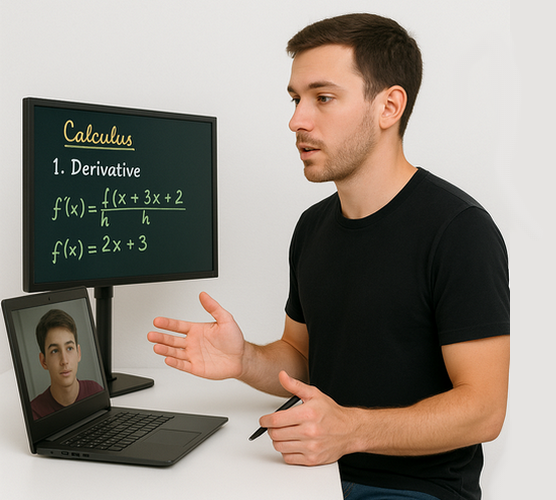 Calculus
1. Derivative
f'(x) = f(x + 3x + 2
h h
f(x) = 2x + 3